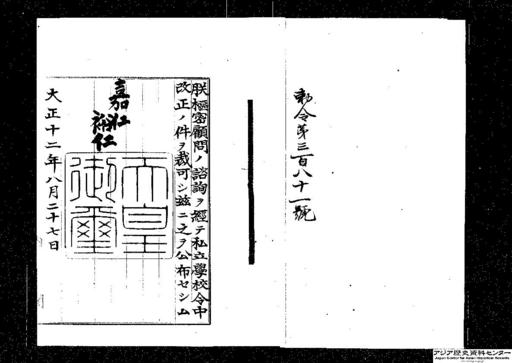 勅令第三百八十一號
朕樞密顧問ノ諮詢ヲ經テ私立學校令中
改正ノ件ヲ裁可シ茲ニ之ヲ公布セシム
嘉仁
裕仁
天皇
御璽
大正十二年八月二十七日
アジア歴史資料センター
Japan Center for Asian Historical Records